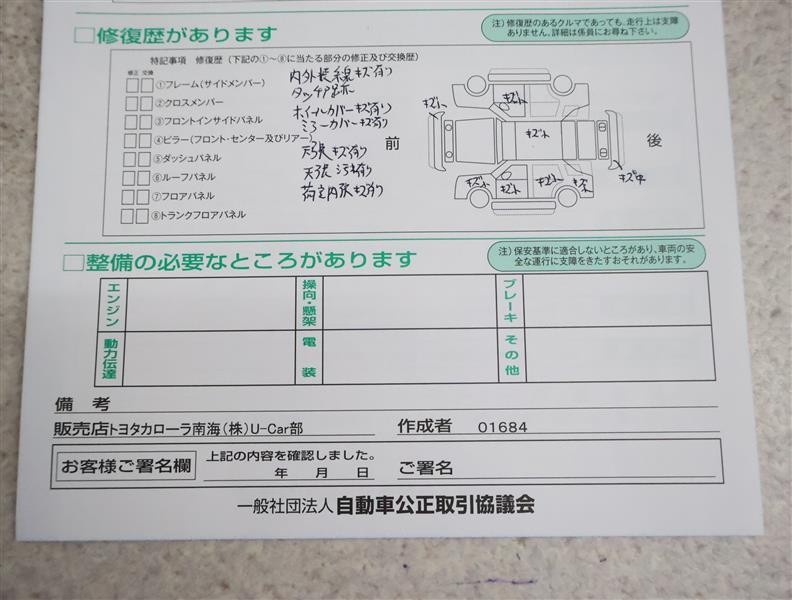 □修復歴があります
注）修復歴のあるクルマであっても、走行上は支障
ありません。詳細は係員にお尋ね下さい。
特記事項 修復歴（下記の①〜⑧に当たる部分の修正及び交換歴）
修正 交換
□□①フレーム（サイドメンバー）
□□②クロスメンバー
□□③フロントインサイドパネル
□□④ピラー（フロント・センター及びリアー）
□□⑤ダッシュパネル
□□⑥ルーフパネル
□□⑦フロアパネル
□□⑧トランクフロアパネル
内外装線キズ有り
タッチP跡有
ホイールカバーキズ有り
ミラーカバーキズ有り
天張キズ有り
天張汚れ有り
荷室内張キズ有り
前
後
□整備の必要なところがあります
注）保安基準に適合しないところがあり、車両の安
全な運行に支障をきたすおそれがあります。
エンジン
操向・懸架
ブレーキ
動力伝達
電装
その他
備考
販売店トヨタカローラ南海（株）U-Car部
作成者 01684
お客様ご署名欄
上記の内容を確認しました。
年 月 日
ご署名
一般社団法人 自動車公正取引協議会